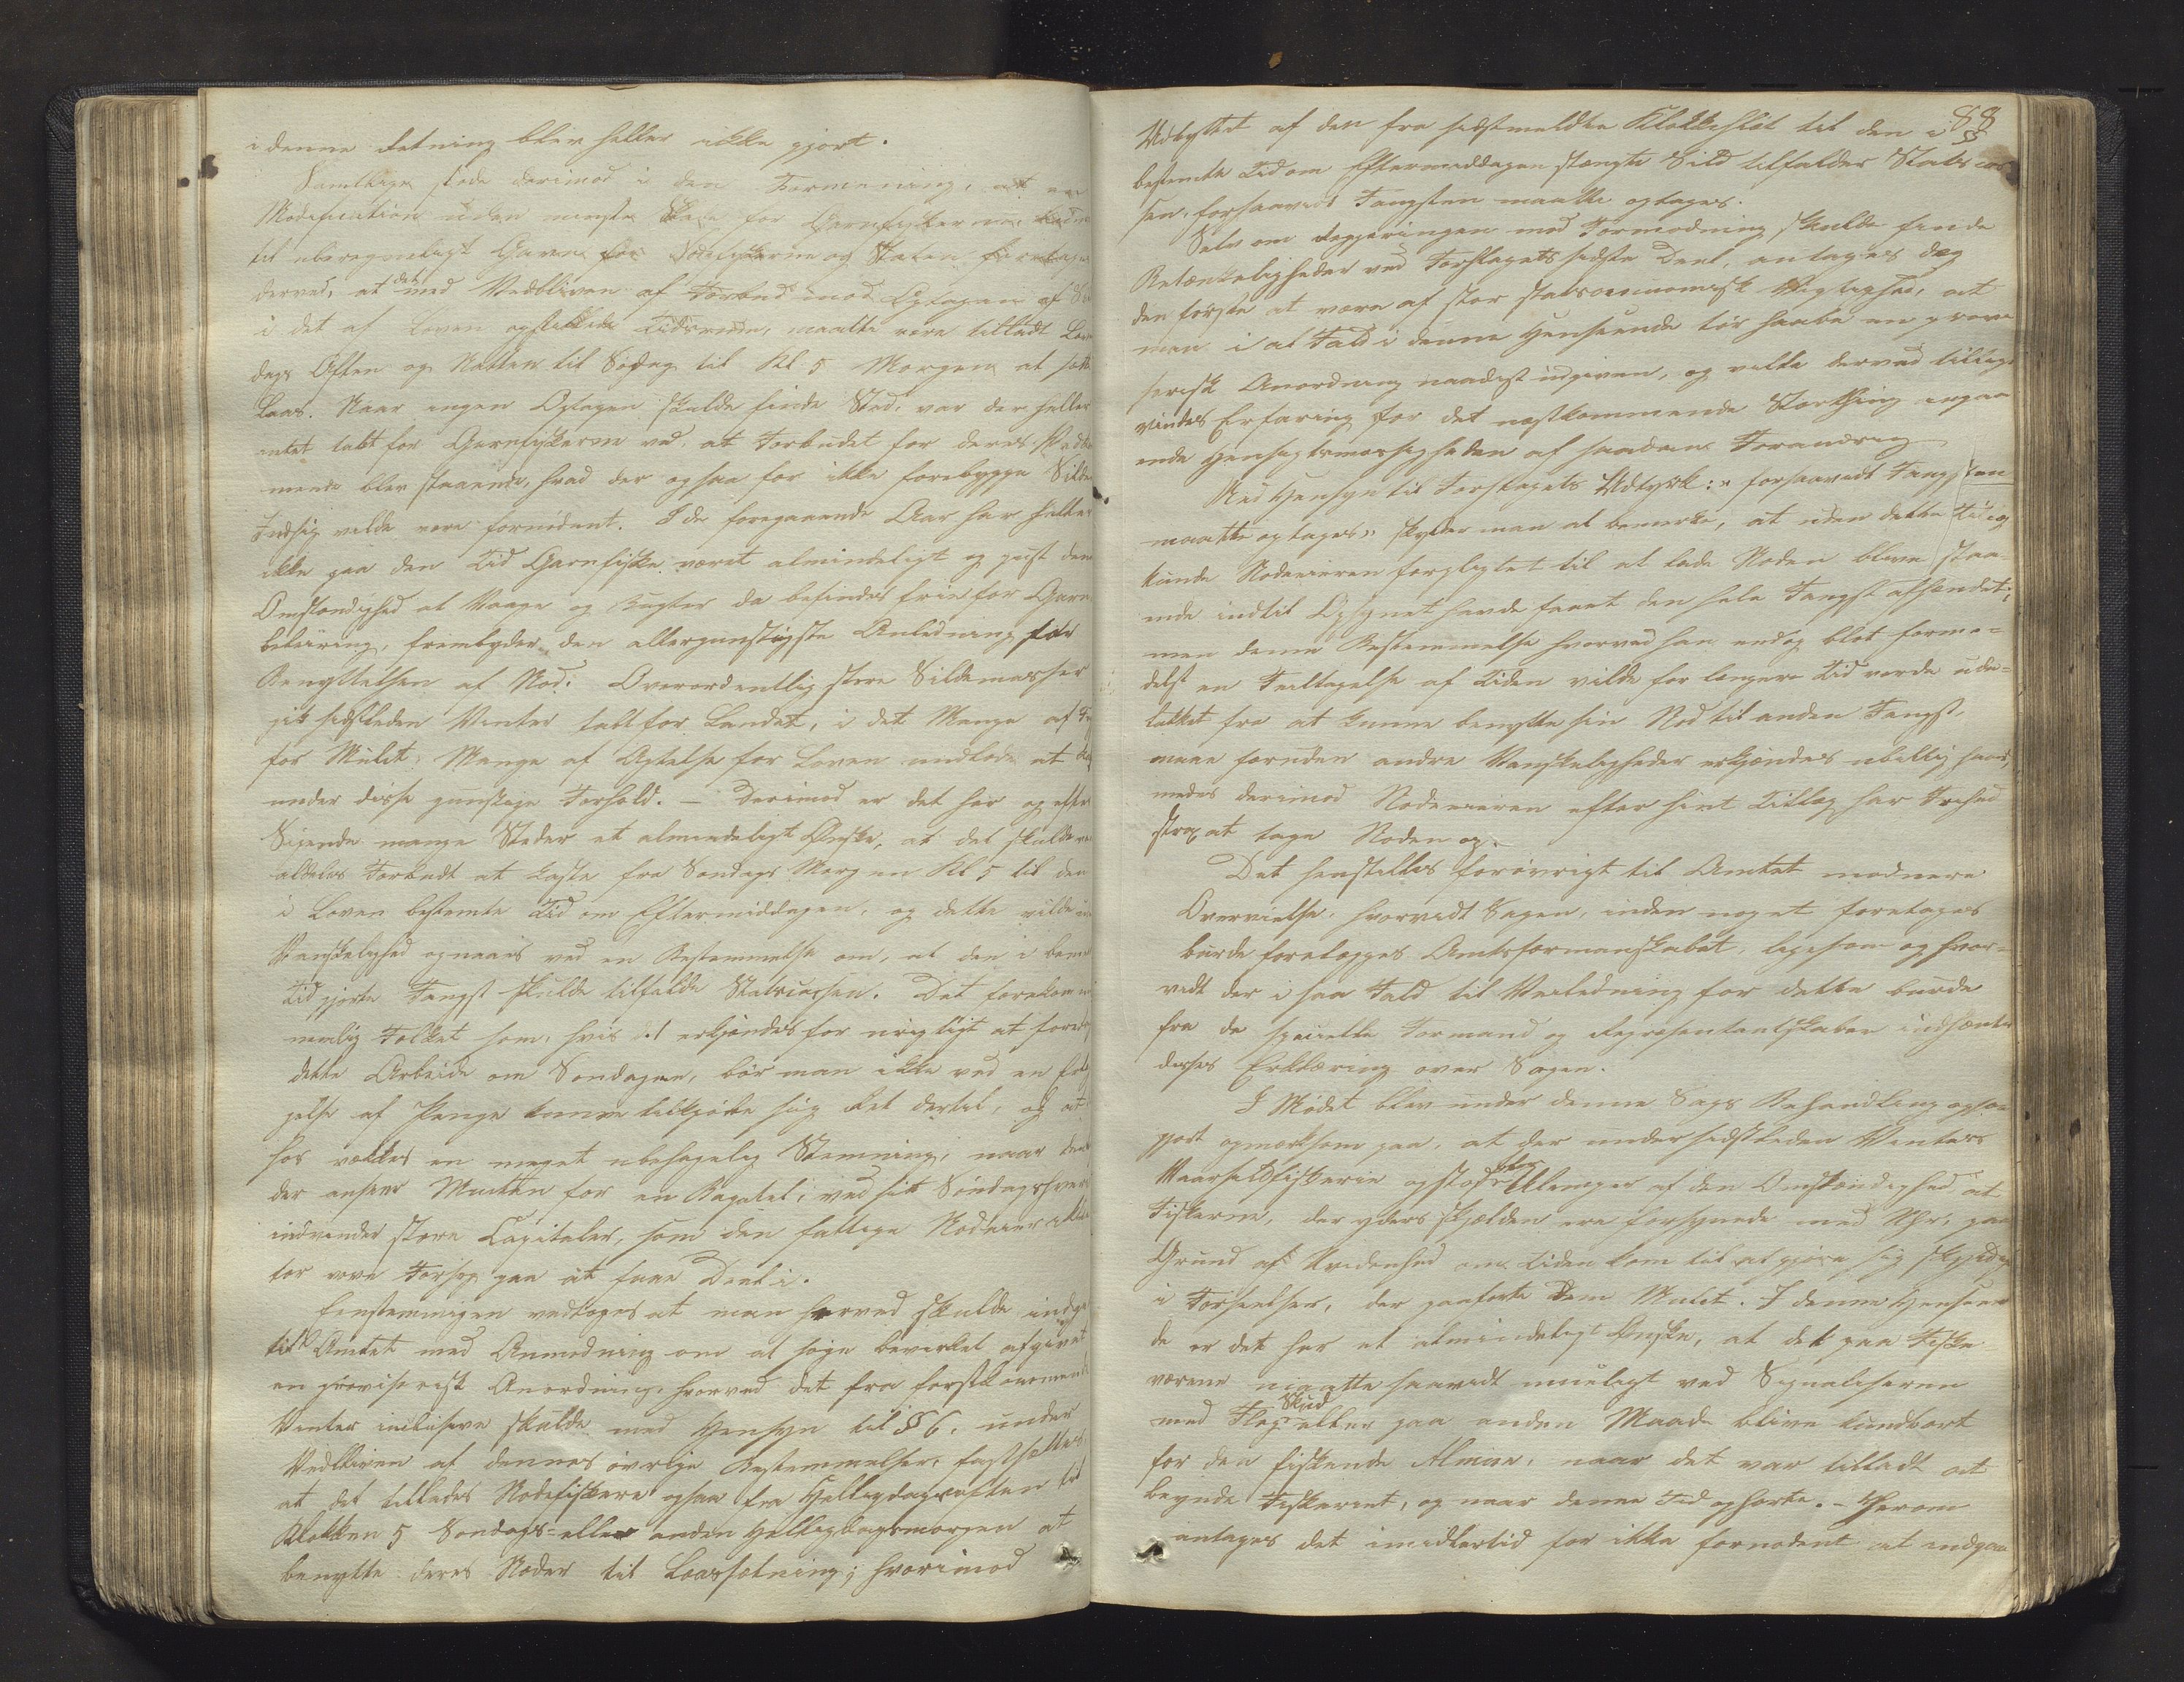 i denne Retning blev heller ikke gjort.
Samtlige stode derimod i den Formening, at en
Modification uden mindste Skade for Garnfiskerne, kunde
til uberegneligt Gavn for Nodefiskerne og Staten foretages
derved, at det med Vedbliven af Forbud mod Optagen af Sild
i det af Loven opstillede Tidsrum, maatte være tilladt Løver
dags Aften og Natten til Søndag til Kl 5 Morgen at sætte
Laas. Naar ingen Optagen skulde finde Sted, var der heller
intet tabt for Garnfiskerne ved, at Forbudet for deres Vedkom
mende blev staaende, hvad der ogsaa for ikke forebygge Sildens
Indsig vilde være fornødent. I de foregaaende Aar har heller
ikke paa den Tid Garnfiske været almindeligt og just den
Omstændighed at Vaage og Bugter da befindes frie for Garn
belæring, frembyder den allergunstigste Anledning for
Benyttelsen af Nod. Overordentlig store Sildemasser
gik sidstleden Vinter tabt for Landet, i det Mange af Frygt
for Mulct, Mange af Agtelse for Loven undlode at kaste
under disse gunstige Forhold. – Derimod er det her og efter
Sigende mange Steder et almindeligt Ønske, at det skulde være
aldeles Forbudt at kaste fra Søndags Morgen Kl 5 til den
i Loven bestemte Tid om Eftermiddagen, og dette vilde uden
Vanskelighed opnaaes ved en Bestemmelse om, at den i bemeldte
Tid gjorte Fangst skulde tilfalde Statscassen. Det forekommer
nemlig Folket som, hvis det erkjendes for urigtigt at foretage
dette Arbeide om Søndagen, bør man ikke ved en Erlæg
gelse af Penge kunne tilkjøbe sig Ret dertil, og at
hos vækkes en meget ubehagelig Stemning, naar den
der anseer Mulcten for en Bagatel, ved sit Søndagshverv
indvinder store Capitaler, som den fattige Nodeeier ikke
tør vove Forsøg paa at faae Deel i.
Eenstemmigen vedtoges at man herved skulde indgaa
til Amtet med Anmodning om at søge bevirket afgivet
en provisorisk Anordning, hvorved det fra førstkommende
Vinter inclusive skulde med Hensyn til § 6, under
Vedbliven af dennes øvrige Bestemmelser, fastsættes,
at det tillades Nodefiskere ogsaa fra Helligdagsaften til
Klokken 5 Søndags- eller anden Helligdagsmorgen at
benytte deres Nøder til Laassætning; hvorimod
88
Udbyttet af den fra sidstmeldte Klokkeslæt til den i §
bestemte Tid om Eftermiddagen stængte Sild tilfalder Statscas
sen, forsaavidt Fangsten maatte optages.
Selv om Regjeringen mod Formodning skulde finde
Betænkeligheder ved Forslagets sidste Deel, antages dog
den første at være af stor statsoeconomisk Vigtighed, at
man i al Fald i denne Henseende tør haabe en provi
sorisk Anordning naadigst udgiven, og vilde derved tillige
vindes Erfaring for det næstkommende Storthing angaa
ende Hensigtsmæssigheden af saadan Forandring
Med Hensyn til Forslagets Udtryk: "forsaavidt Fangsten
maatte optages," skylder man at bemærke, at uden dette Tillæg
kunde Nodeeieren forpligtet til at lade Noden blive staa
ende indtil Opsynet havde faaet den hele Fangst afhændet,
men denne Bestemmelse hvorved han endog blot forme-
delst en Feiltagelse af Tiden vilde for længere Tid vorde ude-
lukket fra at kunne benytte sin Nod til anden Fangst,
maae foruden andre Vanskeligheder erkjendes ubillig haard,
medens derimod Nodeeieren efter hint Tillæg har Frihed
strax at tage Noden op.
Det henstilles forøvrigt til Amtet nærmere
Overveielse, hvorvidt Sagen, inden noget foretages
burde forelægges Amtsformandskabet, ligesom og hvor-
vidt der i saa Fald til Veiledning for dette burde
fra de specielle Formænd og Repræsentantskaber indhentes
disses Erklæring over Sagen.
I Mødet blev under denne Sags Behandling ogsaa
gjort opmærksom paa, at der under sidstleden Vinters
Vaarsildfiskerie opstod Ulemper af den Omstændighed at
Fiskerne, der yders sjælden ere forsynede med Uhr, paa
Grund af Uvidenhed om Tiden kom til at gjøre sig skyldige
i Forseelser, der paaførte Dem Mulct. I denne Henseen
de er det her et almindeligt Ønske, at det paa Fiske
værene maatte saavidt mueligt ved Signaliseren
med Flag Skud eller paa anden Maade blive kundbart
for den fiskende Almue, naar det var tilladt at
begynde Fiskeriet, og naar denne Tid ophørte. – Herom
antages det imidlertid for ikke fornødent at indgaa